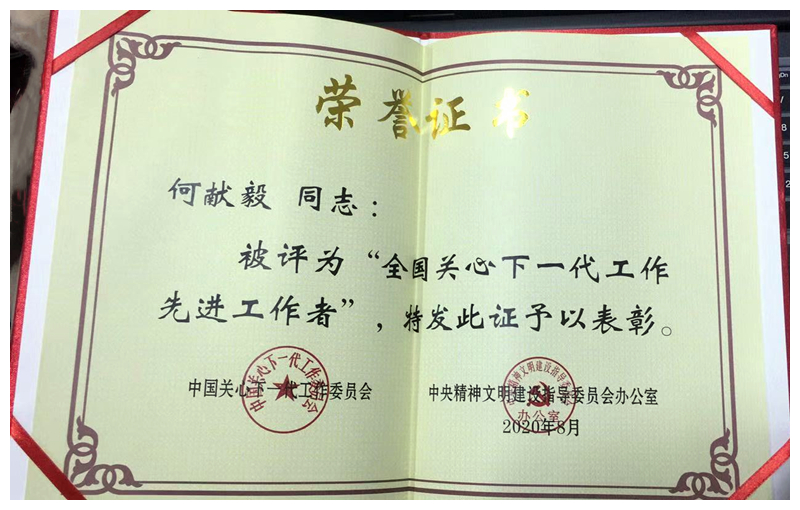 荣誉证书
何献毅 同志：
被评为“全国关心下一代工作
先进工作者”，特发此证予以表彰。
中国关心下一代工作委员会
中央精神文明建设指导委员会办公室
2020年8月
中国关心下一代工作委员会
中央精神文明建设指导委员会
办公室